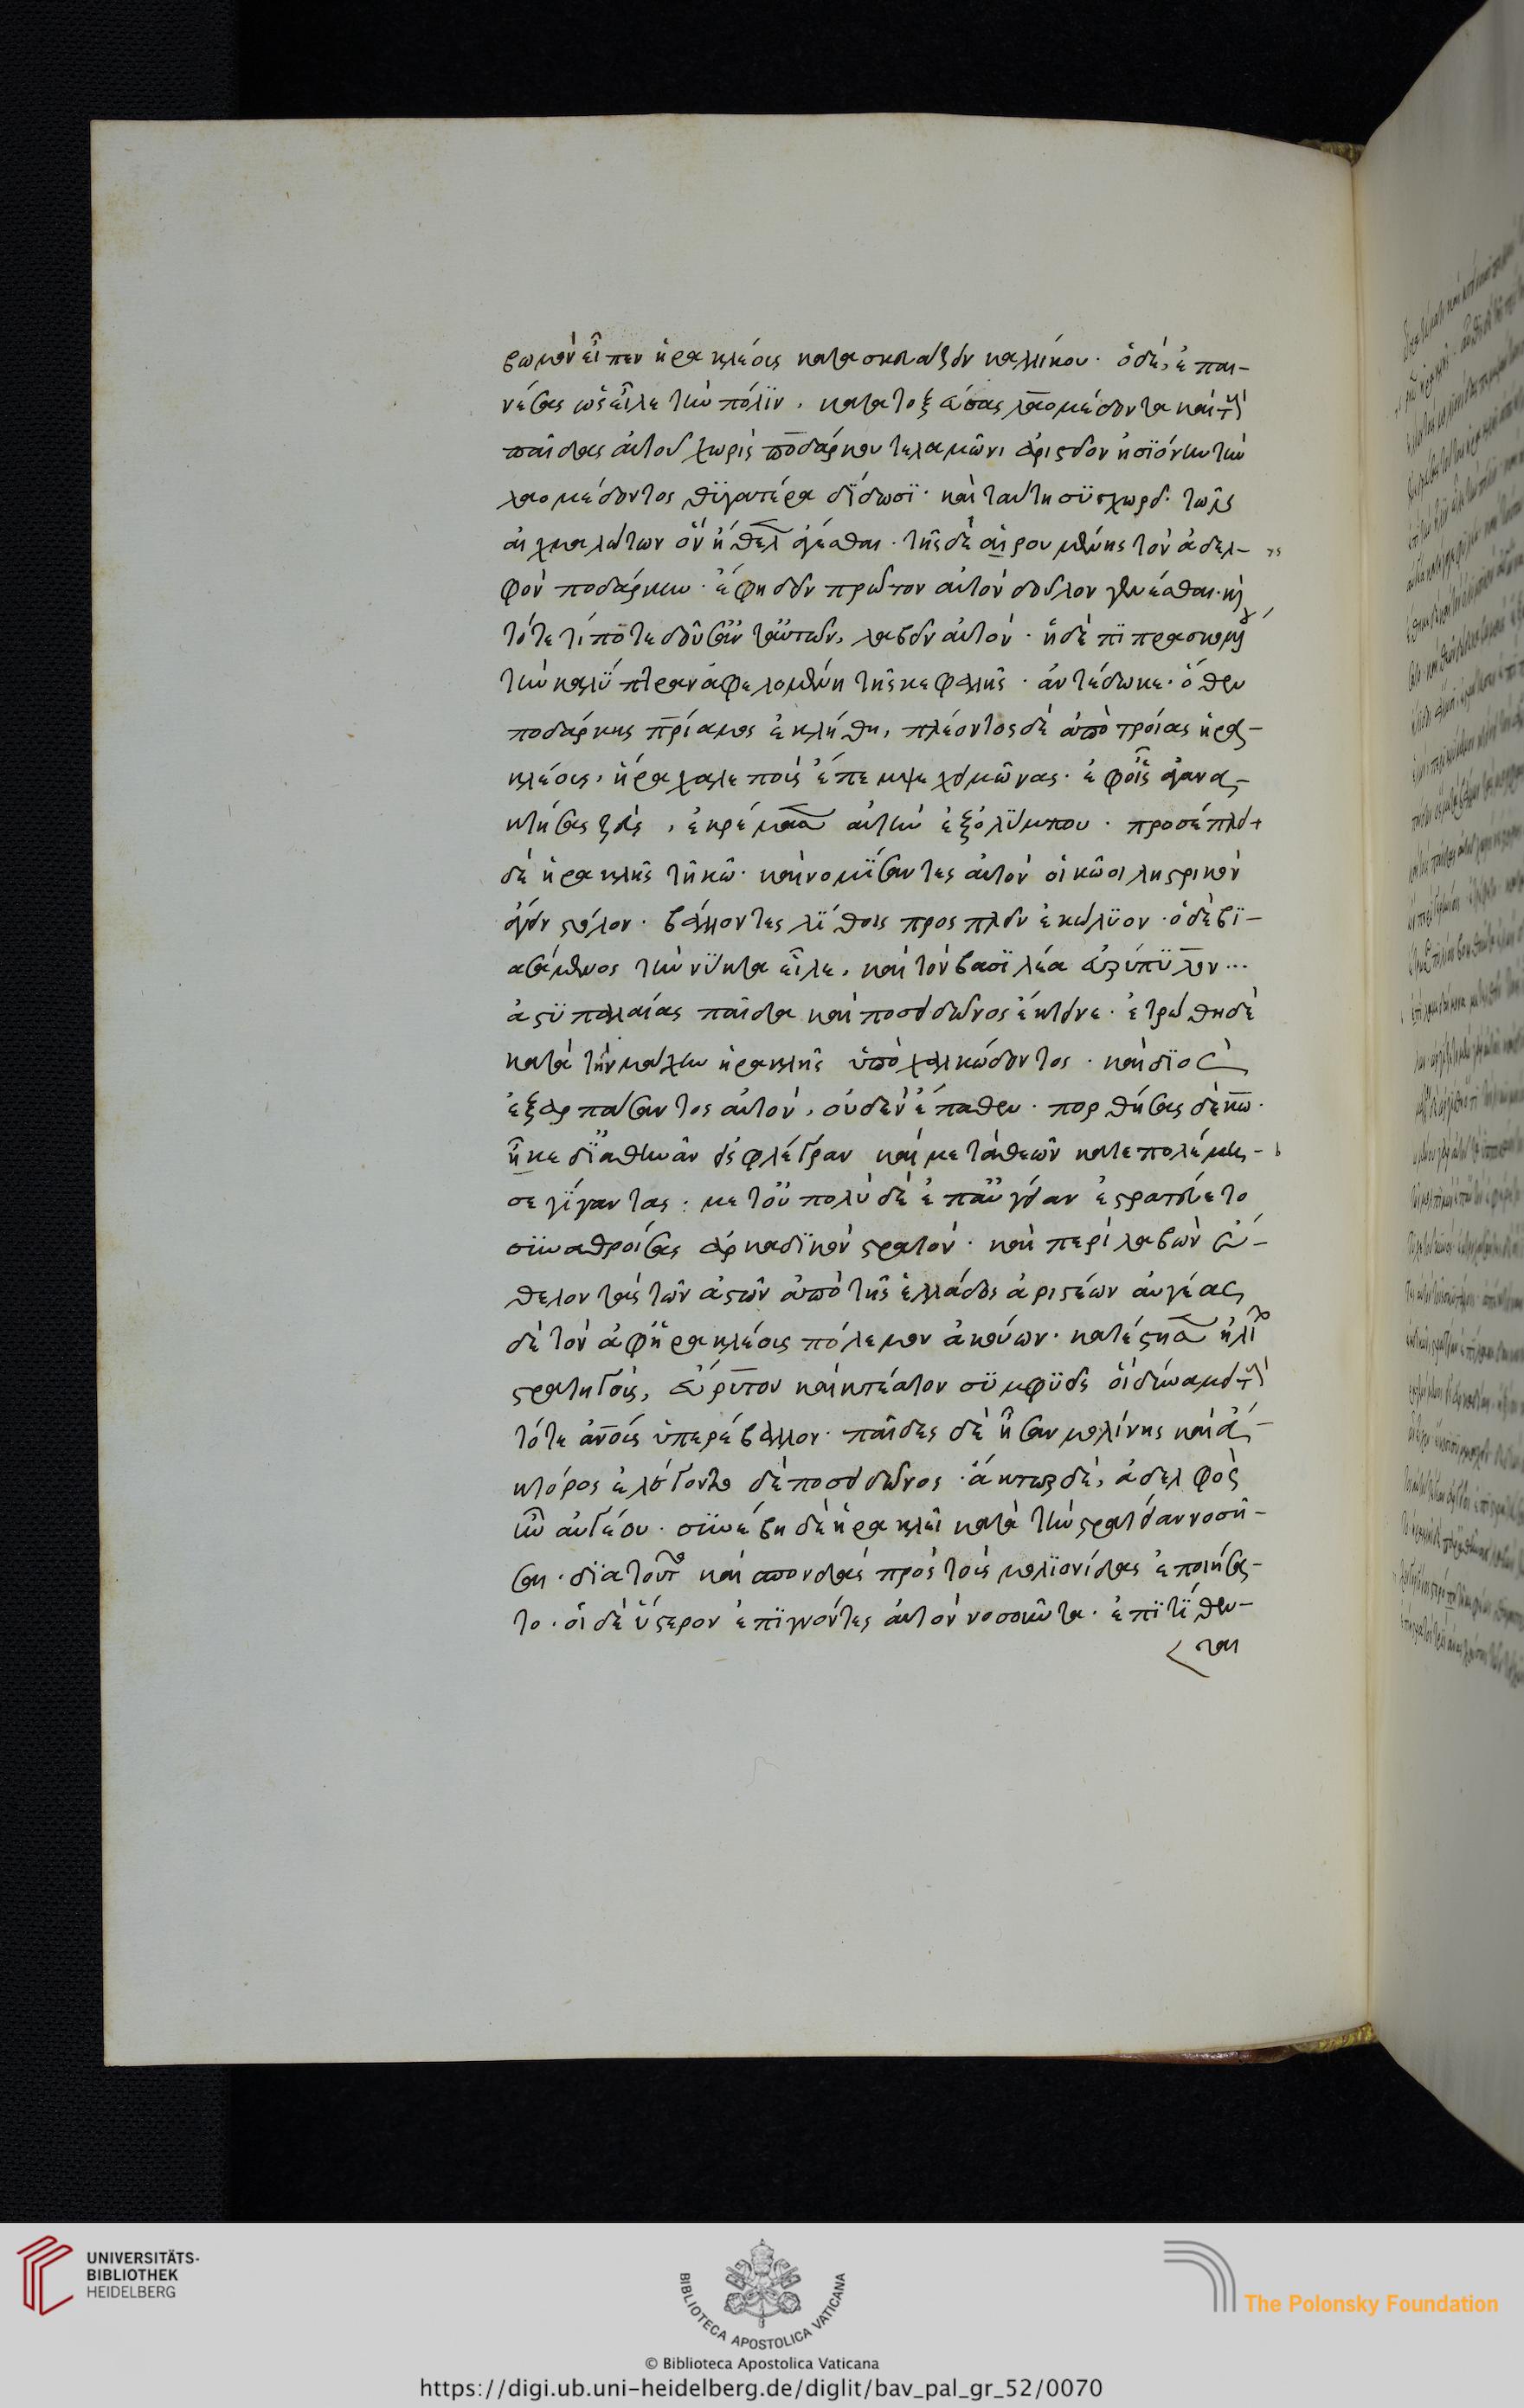 βωμὸν εἶπεν ἡρακλέους κατασκευάζειν καλλινίκου· ὁ δὲ, ἐπαι-
νέσας ὡς εἷλε τὴν πόλιν, κατατοξεύσας λαομέδοντα καὶ τοὺς
παῖδας αὐτοῦ χωρὶς ποδάρκου τελαμῶνι ἀριστεῖον ἡσϊόνην τὴν
λαομέδοντος θϋγατέρα δίδωσϊ· καὶ ταύτη συγχωρεῖ· τῶν
αἰχμαλώτων ὃν ἤθελεν ἄγεσθαι· τῆς δὲ αἱρουμένης τὸν ἀδελ-
φὸν ποδάρκην· ἔφη δεῖν πρῶτον αὐτὸν δοῦλον γενέσθαι· καὶ
τότε τί ποτε δοῦσαν αὐτῶν, λαβεῖν αὐτόν· ἡ δὲ πϊπρασκομένου
τὴν καλύπτραν ἀφελομένη τῆς κεφαλῆς· ἀντέδωκε· ὅθεν
ποδάρκης πρίαμος ἐκλήθη, πλέοντος δὲ ἀπὸ τροίας ἡρα-
κλέους, ἥρα χαλεποὺς ἔπεμψε χειμῶνας· ἐφ οἷς ἀγανα-
κτήσας ζεὺς, ἐκρέμασεν αὐτὴν ἐξ ὀλύμπου· προσέπλει
δὲ ἡρακλῆς τῇ κῷ· καὶ νομίσαντες αὐτὸν οἱ κῷοι λῃστρικὸν
ἄγειν στόλον· βάλλοντες λίθοις προσπλεῖν ἐκώλϋον· ὁ δὲ βϊ-
ασάμενος τὴν νύκτα εἷλε, καὶ τὸν βασϊλέα εὐρύπϋλον...
ἀστϋπαλαίας παῖδα καὶ ποσειδῶνος ἔκτεινε· ἐτρώθη δὲ
κατὰ τὴν μάχην ἡρακλῆς ὑπὸ χαλκώδοντος· καὶ διὸς
ἐξαρπάσαντος αὐτὸν, οὐδὲν ἔπαθεν· πορθήσας δὲ κῶ·
ἧκε δϊ ἀθηνᾶν εἰς φλέγραν καὶ μετὰ θεῶν κατεπολέμη-
σε γίγαντας: μετ οὐ πολὺ δὲ ἐπ αὐγείαν ἐστρατεύετο
σϋναθροίσας ἀρκαδϊκὸν στρατόν· καὶ περϊλαβὼν ἐ-
θελοντὰς τῶν ἀστῶν ἀπὸ τῆς ἑλλάδος ἀριστέων αὐγέας
δὲ τὸν ἀφ ἡρακλέους πόλεμον ἀκούων· κατέστησεν ἠλείων
στρατηγοὺς, εὔρυτον καὶ κτέατον συμφϋεῖς οἳ δυνάμει τοὺς
τότε ἀνθρώπους ὑπερέβαλλον· παῖδες δὲ ἦσαν μολίνης καὶ ἄ-
κτορος ἐλέγοντο δὲ ποσειδῶνος· ἄκτωρ δὲ, ἀδελφὸς
ἦν αὐγέου· συνέβη δὲ ἡρακλεῖ κατὰ τὴν στρατείαν νοσῆ-
σαι· διὰ τοῦτο καὶ σπονδὰς πρὸς τοὺς μολϊονίδας ἐποιήσα-
το· οἱ δὲ ὕστερον ἐπϊγνόντες αὐτὸν νοσοῦντα· ἐπϊτίθεν-
ται
UNIVERSITÄTS-
BIBLIOTHEK
HEIDELBERG
BIBLIOTECA APOSTOLICA VATICANA
The Polonsky Foundation
© Biblioteca Apostolica Vaticana
https://digi.ub.uni-heidelberg.de/diglit/bav_pal_gr_52/0070